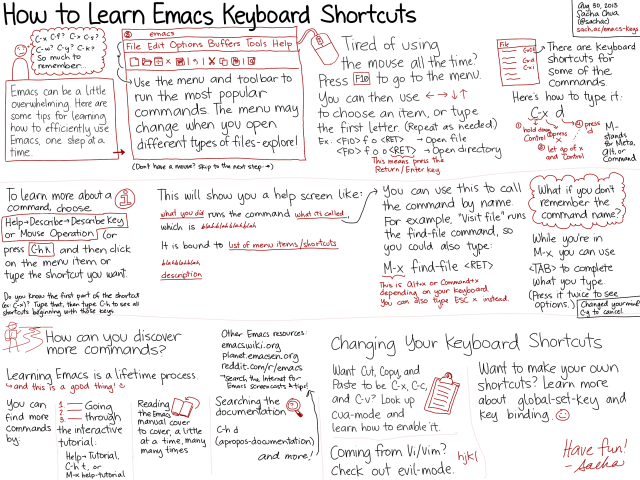 How to Learn Emacs Keyboard Shortcuts
Aug 30, 2013
Sacha Chua
(@sachac)
sach.ac/emacs-keys
C-x C-f? C-x 2?
C-w? C-y? C-k?
So much to
remember...
Emacs can be a little
overwhelming. Here are
some tips for learning
how to efficiently use
Emacs, one step at a
time.
emacs
File Edit Options Buffers Tools Help
Use the menu and toolbar to
run the most popular
commands. The menu may
change when you open
different types of files-explore!
(Don't have a mouse? Skip to the next step →)
Tired of using
the mouse all the time?
Press F10 to go to the menu.
You can then use ← → ↓ ↑
to choose an item, or type
the first letter. (Repeat as needed)
Ex: <F10> f o <RET> → Open file
<F10> f o o <RET> → Open directory
This means press the
Return/Enter key
File
There are keyboard
shortcuts for
some of the
commands.
Here's how to type it:
C-x d
① hold down
Control
② press
x
③ let go of x
and Control
④ press
d
M-
stands for
Meta,
Alt, or
Command.
To learn more about a
command, choose
Help→Describe→Describe Key
or Mouse Operation (or
press C-h k and then click
on the menu item or
type the shortcut you want.
Do you know the first part of the shortcut
(ex: C-x)? Type that, then type C-h to see all
shortcuts beginning with those keys.
This will show you a help screen like:
what you did runs the command what it's called
which is blahblahblahblah
It is bound to list of menu items/shortcuts
blahblahblah
description
You can use this to call
the command by name.
For example, "Visit file" runs
the find-file command, so
you could also type:
M-x find-file <RET>
This is Alt+x or Command+x
depending on your keyboard.
You can also type ESC x instead.
What if you don't
remember the
command name?
While you're in
M-x you can use
<TAB> to complete
what you type.
(Press it twice to see
options.)
Changed your mind?
C-g to cancel.
How can you discover
more commands?
Learning Emacs is a lifetime process.
and this is a good thing!
You can
find more
commands
by:
1. Going
2. through
3. the interactive
tutorial:
Help→Tutorial,
C-h t, or
M-x help-tutorial
Reading
the Emacs
manual cover
to cover, a little
at a time, many
many times
Other Emacs resources:
emacswiki.org
planet.emacsen.org
reddit.com/r/emacs
Search the Internet for
Emacs screencasts & tips!
Searching the
documentation
C-h d
(apropos-documentation)
and more!
Changing Your Keyboard Shortcuts
Want Cut, Copy, and
Paste to be C-x, C-c,
and C-v? Look up
cua-mode and
learn how to enable it.
Coming from Vi/Vim?
Check out evil-mode.
hjkl
Want to make your own
shortcuts? Learn more
about global-set-key and
key binding.
Have fun!
- Sacha